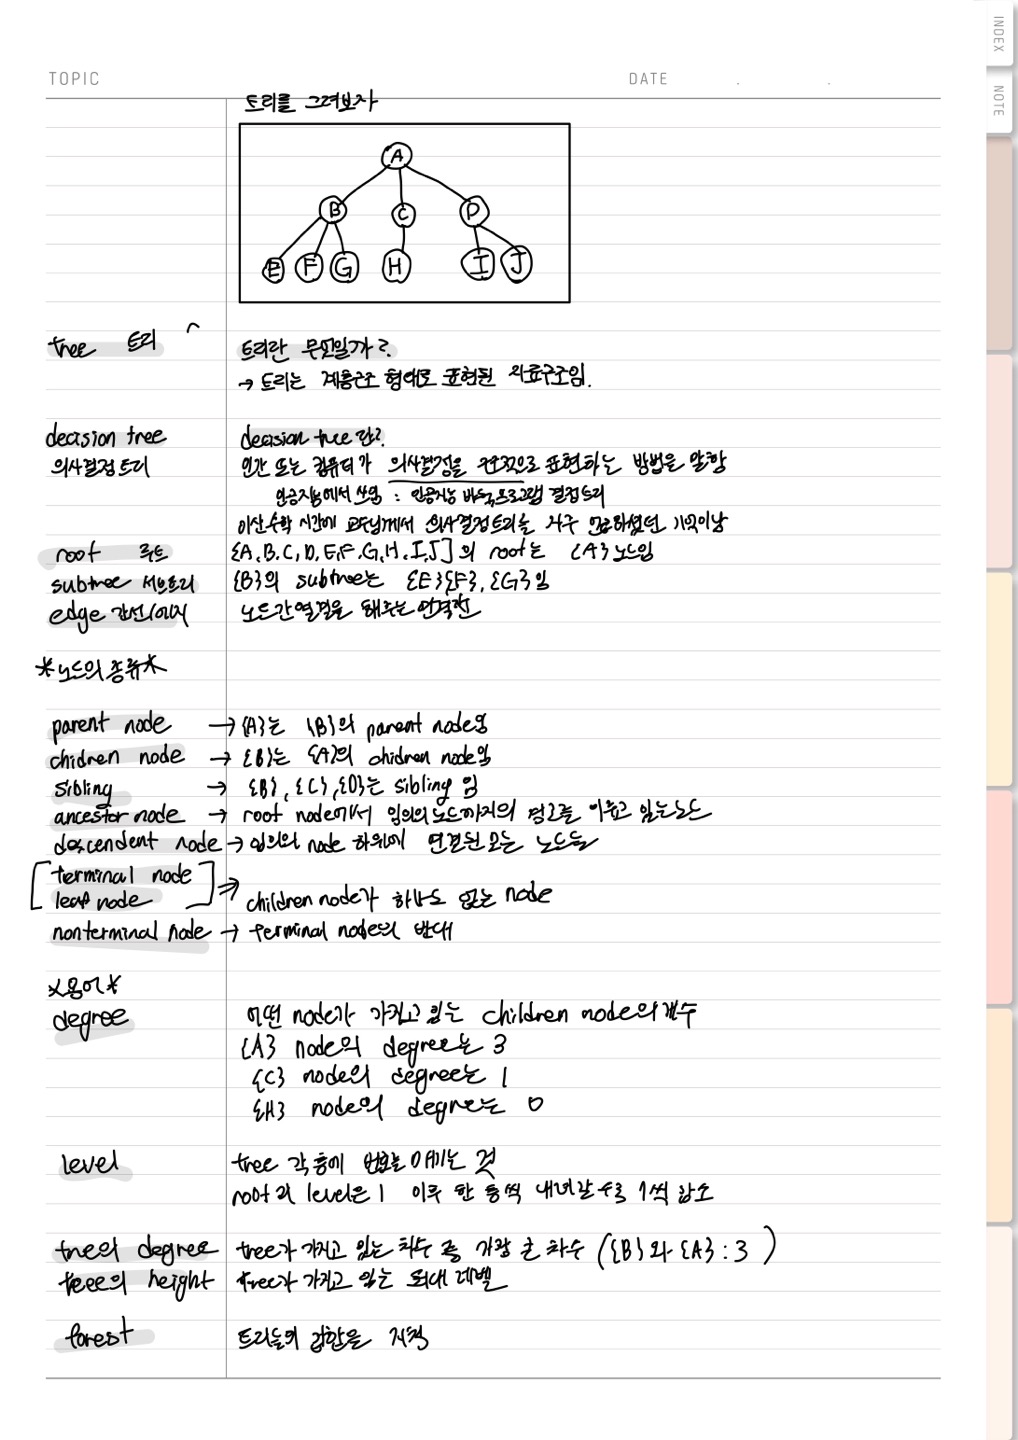 INDEX
NOTE
TOPIC
DATE . .
트리를 그려보자
A
B C D
E F G H I J
tree 트리
트리란 무엇일까?
→ 트리는 계층구조 형태로 표현된 자료구조임.
decision tree
의사결정트리
decision tree란?
인간 또는 컴퓨터가 의사결정을 표현하는 방법을 말함
인공지능에서 쓰임 : 인공지능 바둑프로그램 결정트리
이산수학 시간에 교수님께서 의사결정트리를 자주 언급하셨던 기억이남
root 루트 {A,B,C,D,E,F,G,H,I,J]의 root는 {A}노드임
subtree 서브트리 {B}의 subtree는 {E}{F},{G}임
edge 간선/에지 노드간 연결을 해주는 연결선
*노드의 종류*
parent node → {A}는 {B}의 parent node임
chidren node → {B}는 {A}의 chidren node임
sibling → {B},{C},{D}는 sibling 임
ancestor node → root node에서 임의의 노드까지의 경로를 이루고 있는 노드
descendent node → 임의의 node 하위에 연결된 모든 노드들
[terminal node
leaf node] → children node가 하나도 없는 node
nonterminal node → terminal node의 반대
*용어*
degree
어떤 node가 가지고 있는 children node의 개수
{A} node의 degree는 3
{C} node의 degree는 1
{H} node의 degree는 0
level
tree 각 층에 번호를 매기는 것
root의 level은 1 이후 한 층씩 내려갈수록 1씩 감소
tree의 degree tree가 가지고 있는 차수 중 가장 큰 차수 ({B}와 {A} : 3 )
teee의 height tree가 가지고 있는 최대 레벨
forest 트리들의 집합을 지칭